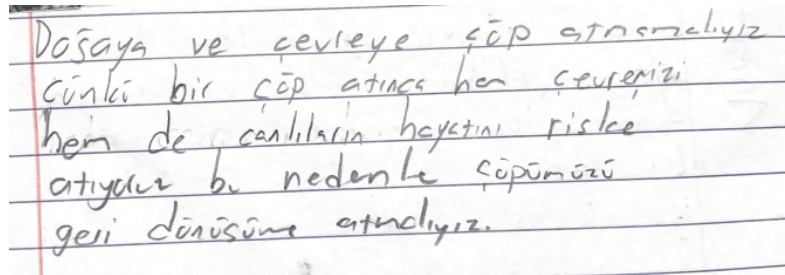 Doğaya ve çevreye çöp atmamalıyız
Çünkü bir çöp atınca hem çevremizi
hem de canlıların hayatını riske
atıyoruz bu nedenle çöpümüzü
geri dönüşüme atmalıyız.